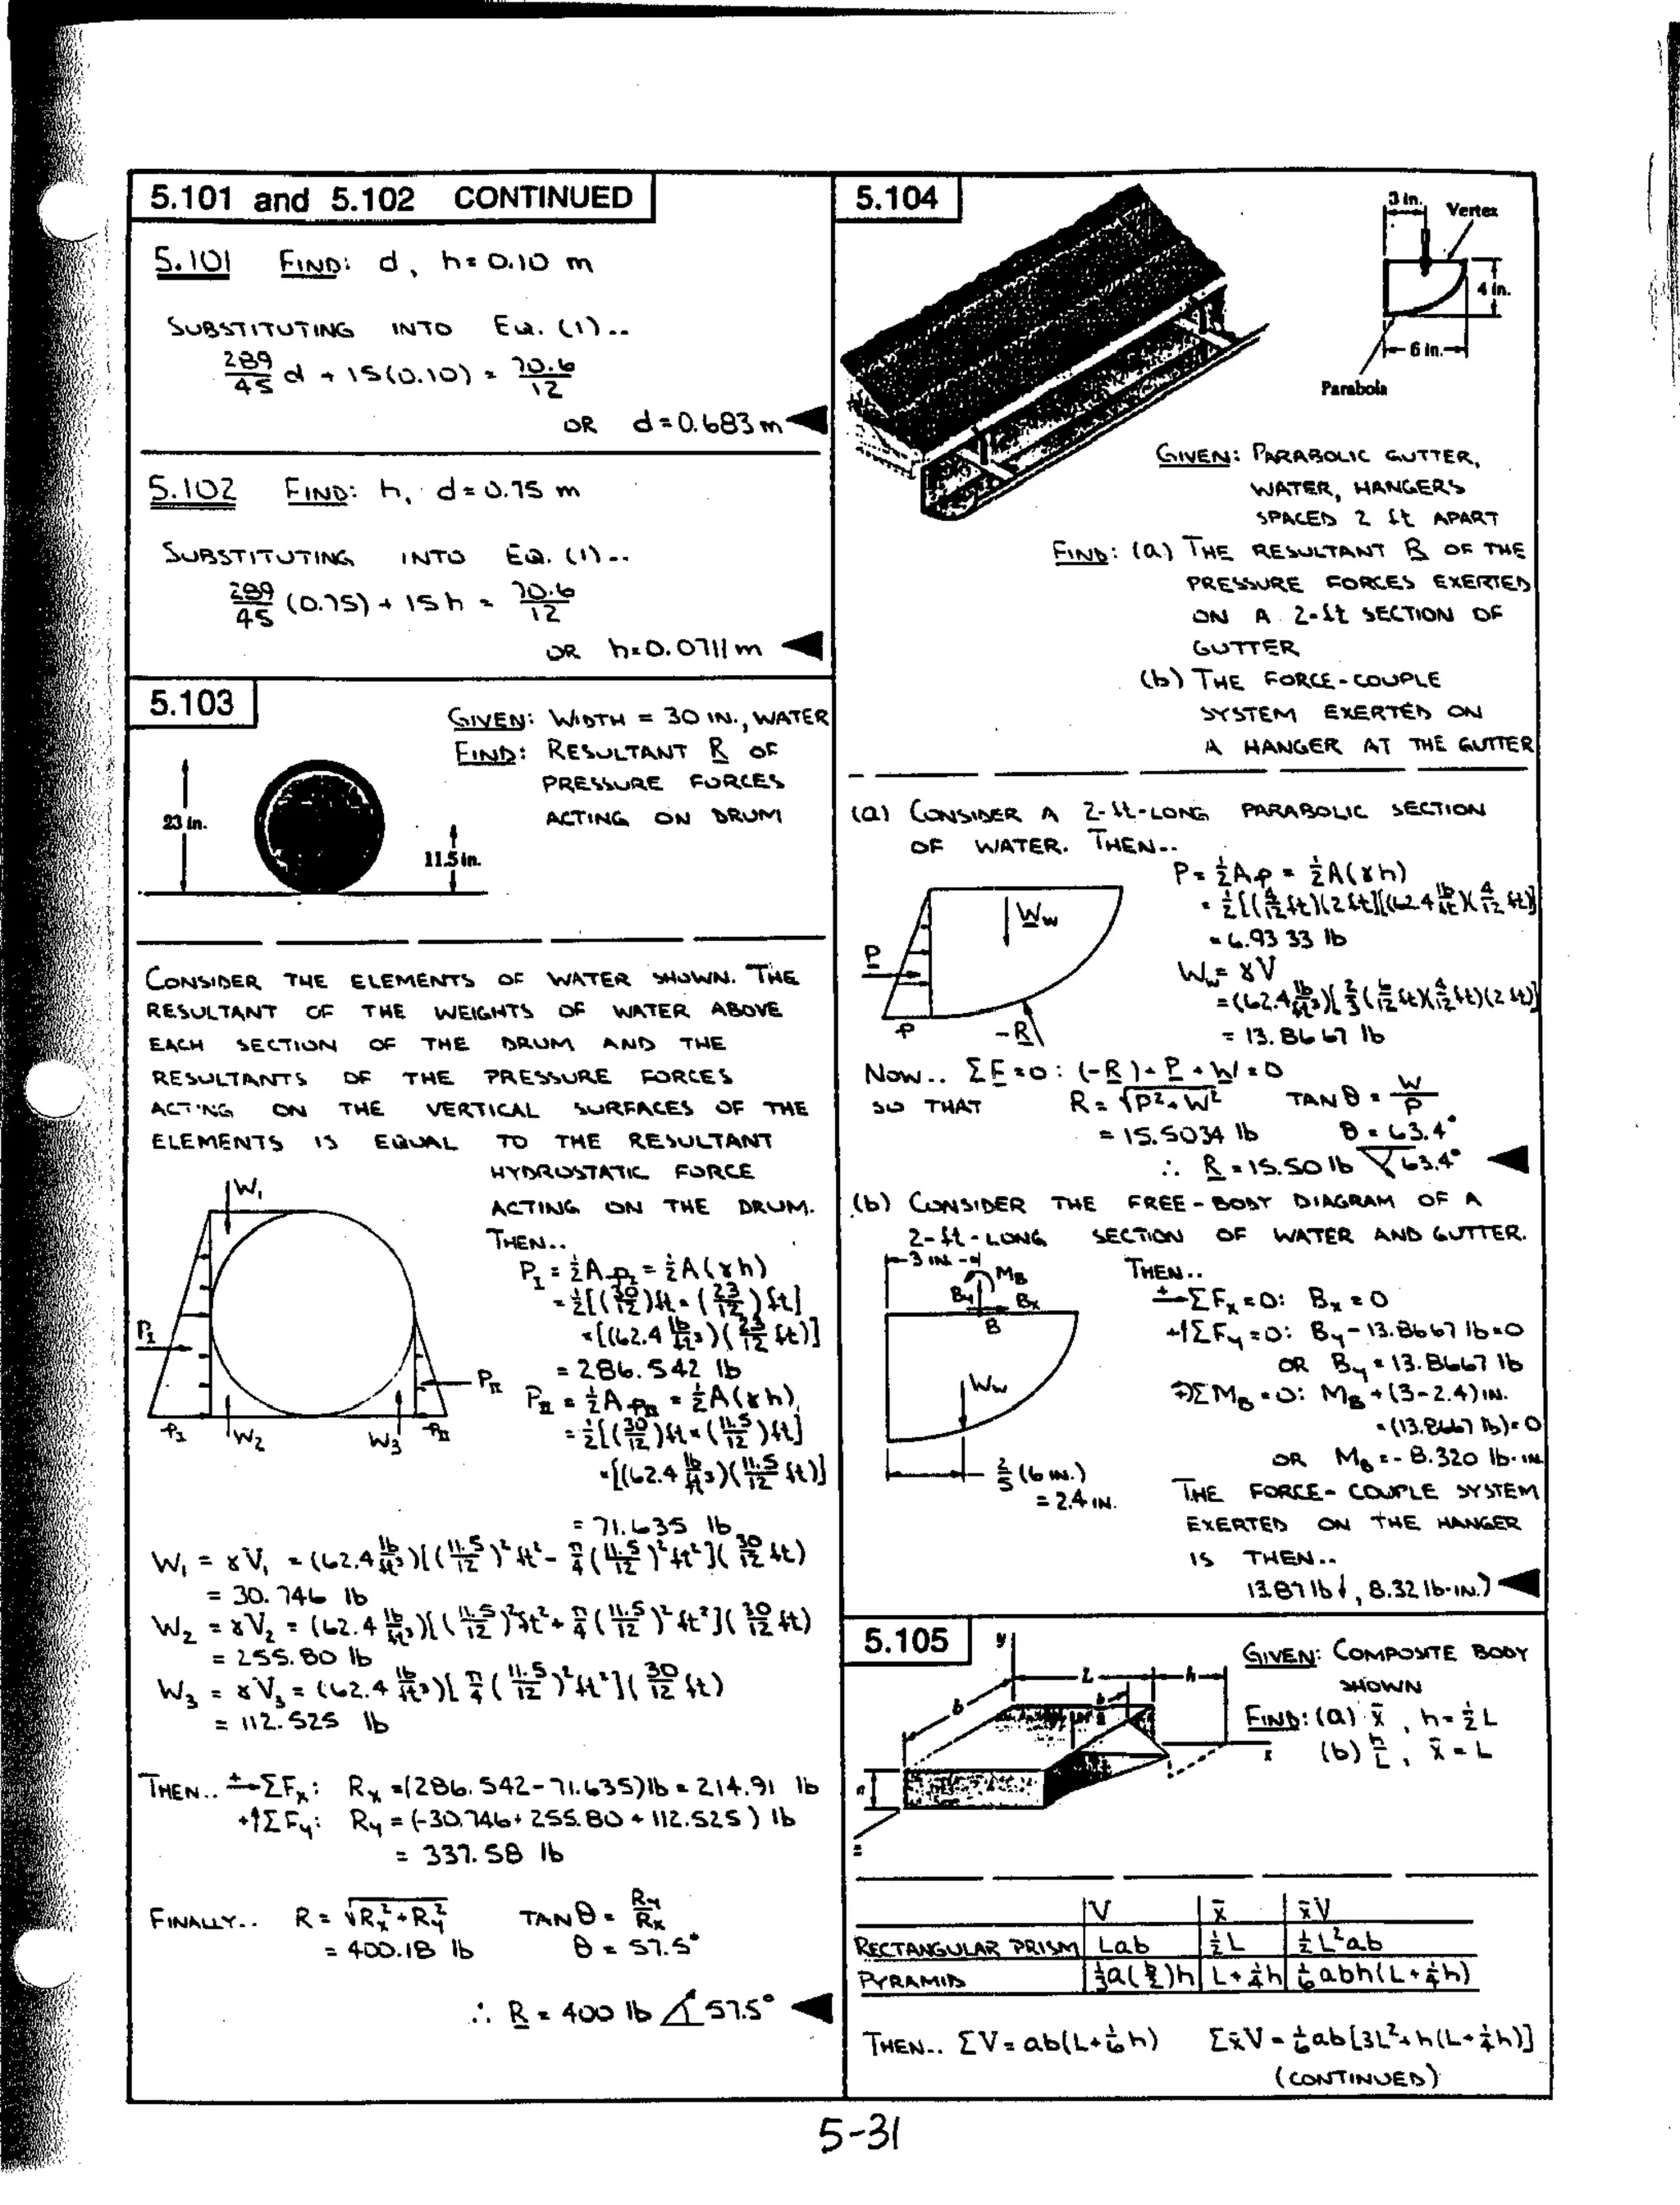 5.101 and 5.102 CONTINUED
5.101 FIND: d, h = 0.10 m
SUBSTITUTING INTO EQ. (1)..
289/45 d + 15(0.10) = 70.6/12
OR d = 0.683 m
5.102 FIND: h, d = 0.75 m
SUBSTITUTING INTO EQ. (1)..
289/45 (0.75) + 15 h = 70.6/12
OR h = 0.0711 m
5.103
GIVEN: WIDTH = 30 IN., WATER
FIND: RESULTANT R OF
PRESSURE FORCES
ACTING ON DRUM
23 in.
11.5 in.
CONSIDER THE ELEMENTS OF WATER SHOWN. THE
RESULTANT OF THE WEIGHTS OF WATER ABOVE
EACH SECTION OF THE DRUM AND THE
RESULTANTS OF THE PRESSURE FORCES
ACTING ON THE VERTICAL SURFACES OF THE
ELEMENTS IS EQUAL TO THE RESULTANT
HYDROSTATIC FORCE
ACTING ON THE DRUM.
THEN..
W₁
P_I
P_II
p_I
W₂
W₃
p_II
P_I = ½ A p_I = ½ A(γh)
= ½[(30/12)ft × (23/12) ft]
×[(62.4 lb/ft³)(23/12 ft)]
= 286.542 lb
P_II = ½ A p_II = ½ A(γh)
= ½[(30/12)ft × (11.5/12)ft]
×[(62.4 lb/ft³)(11.5/12 ft)]
= 71.635 lb
W₁ = γV₁ = (62.4 lb/ft³)[(11.5/12)² ft² - π/4 (11.5/12)² ft²](30/12 ft)
= 30.746 lb
W₂ = γV₂ = (62.4 lb/ft³)[(11.5/12)² ft² + π/4 (11.5/12)² ft²](30/12 ft)
= 255.80 lb
W₃ = γV₃ = (62.4 lb/ft³)[π/4 (11.5/12)² ft²](30/12 ft)
= 112.525 lb
THEN.. →+ ΣFx: Rx = (286.542-71.635)lb = 214.91 lb
+↑ΣFy: Ry = (-30.746 + 255.80 + 112.525) lb
= 337.58 lb
FINALLY.. R = √Rx² + Ry² TAN θ = Ry/Rx
= 400.18 lb θ = 57.5°
∴ R = 400 lb ∠ 57.5°
5.104
3 in.
Vertex
4 in.
6 in.
Parabola
GIVEN: PARABOLIC GUTTER,
WATER, HANGERS
SPACED 2 ft APART
FIND: (a) THE RESULTANT R OF THE
PRESSURE FORCES EXERTED
ON A 2-ft SECTION OF
GUTTER
(b) THE FORCE-COUPLE
SYSTEM EXERTED ON
A HANGER AT THE GUTTER
(a) CONSIDER A 2-ft-LONG PARABOLIC SECTION
OF WATER. THEN..
P
W_w
p
-R
P = ½ A p = ½ A(γh)
= ½[(4/12 ft)(2 ft)][(62.4 lb/ft)(4/12 ft)]
= 6.93 33 lb
W_w = γV
= (62.4 lb/ft³)[⅔(6/12 ft)(4/12 ft)(2 ft)]
= 13.8667 lb
NOW.. ΣF = 0: (-R) + P + W = 0
SO THAT R = √P² + W² TAN θ = W/P
= 15.5034 lb θ = 63.4°
∴ R = 15.50 lb 63.4°
(b) CONSIDER THE FREE-BODY DIAGRAM OF A
2-ft-LONG SECTION OF WATER AND GUTTER.
3 IN.
M_B
By
Bx
B
W_w
⅖ (6 IN.)
= 2.4 IN.
THEN..
→+ ΣFx = 0: Bx = 0
+↑ΣFy = 0: By - 13.8667 lb = 0
OR By = 13.8667 lb
ΣM_B = 0: M_B + (3-2.4) IN.
×(13.8667 lb) = 0
OR M_B = -8.320 lb·IN.
THE FORCE-COUPLE SYSTEM
EXERTED ON THE HANGER
IS THEN..
13.87 lb ↓, 8.32 lb·IN.
5.105
y
L
h
b
x
a
z
GIVEN: COMPOSITE BODY
SHOWN
FIND: (a) x̄, h = ½ L
(b) h/L, x̄ = L
V x̄ x̄V
RECTANGULAR PRISM Lab ½L ½L²ab
PYRAMID ⅓a(b/2)h L + ¼h ⅙abh(L + ¼h)
THEN.. ΣV = ab(L + ⅙h) Σx̄V = ⅙ab[3L² + h(L + ¼h)]
(CONTINUED)
5-31